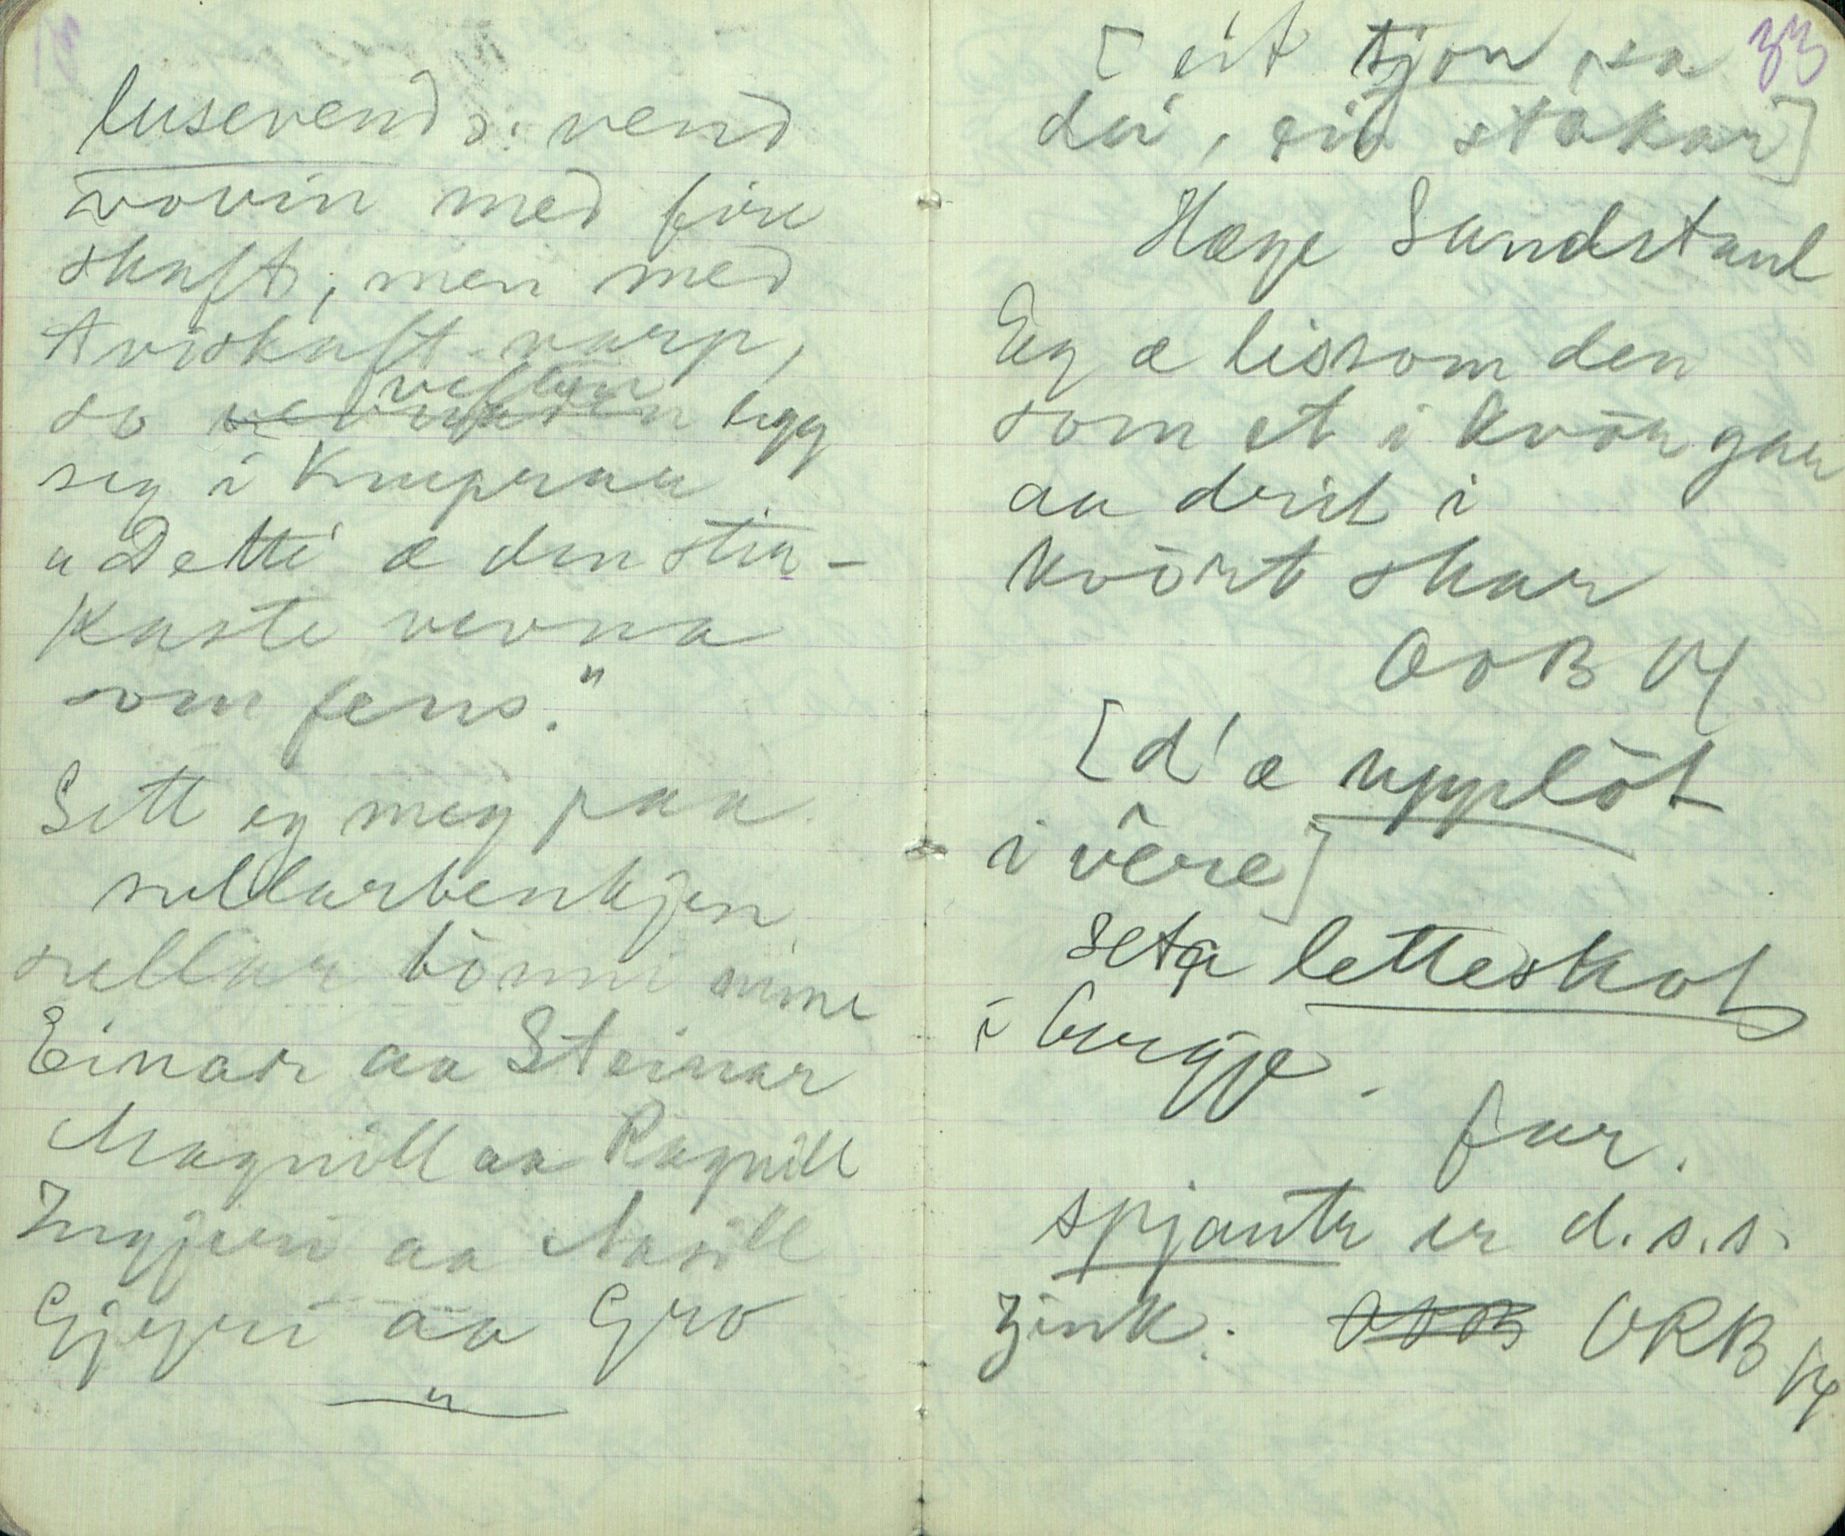 lusevend ɔ: vend
vovin med fire
skaft, men med
tviskaft varp,
so veften legg
seg i Kruprau
"Detti æ den stin-
kaste vevna
som fens."
Sett eg meg paa
sullarbenkjen
sullar bönni mine
Einar aa Steinar
Magnill aa Ragnill
Ingjeri aa Aasill
Gjyri aa Gro
"
33
[eit tjon paa
dei, ein stakar]
Hæge Sundstaul
Eg æ lissom den
som et i kvòr gaar
aa drit i
kvòrt skar
OOB 14
[d'æ upplòt
i vêre]
seta letteskot
i byrgje.
far.
spjautr er d.s.s.
zink. ORB 14